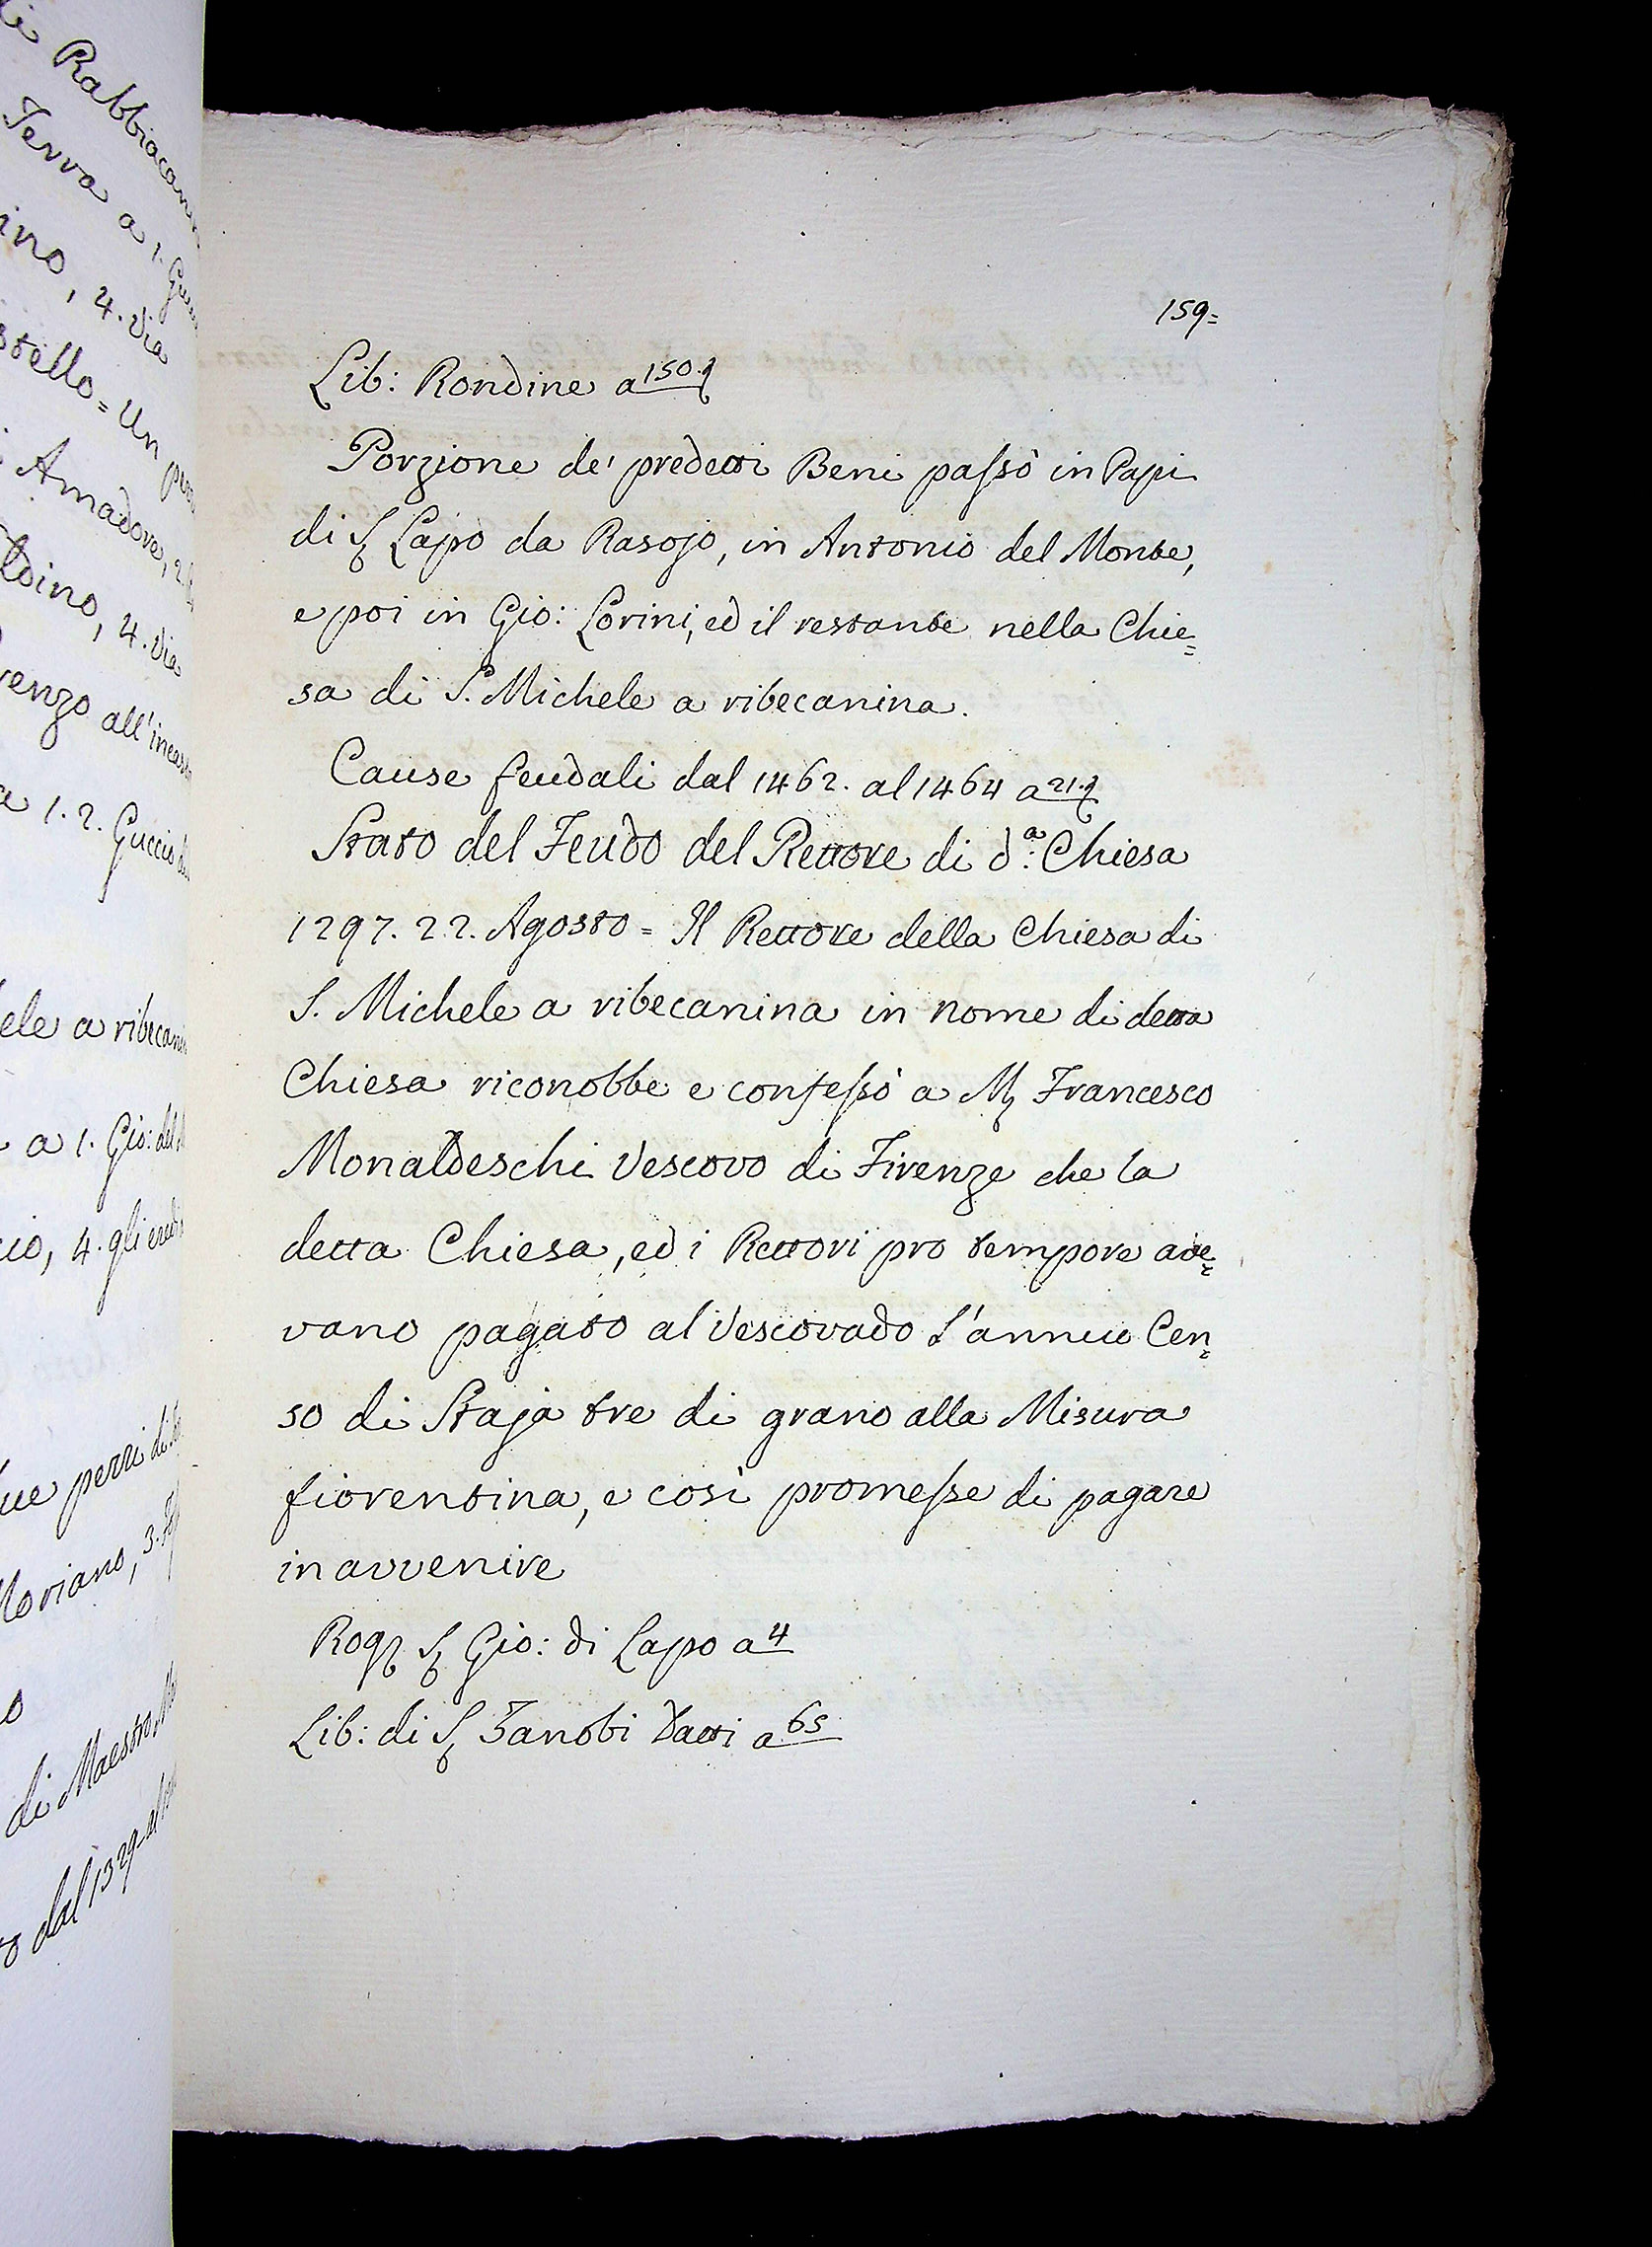 li Rabbiacan
Terra a 1. Gu
ino, 4. Via
stello = Un pe
Amadore, 2.
ldino, 4. Via
renzo all'incan
a 1. 2. Guccio di
ele a ribecani
a 1. Gio: del
cio, 4. gli eredi
ue pezzi di
loriano, 3.
o
di Maestro
dal 1329 al
159=
Lib: Rondine a 150.
Porzione de' predetti Beni passò in Papi
di S Lapo da Rasojo, in Antonio del Monte,
e poi in Gio: Lorini, ed il restante nella Chie=
sa di S. Michele a ribecanina.
Cause feudali dal 1462. al 1464 a 21.
Stato del Feudo del Rettore di d.ª Chiesa
1297. 22. Agosto = Il Rettore della Chiesa di
S. Michele a ribecanina in nome di detta
Chiesa riconobbe e confessò a M Francesco
Monaldeschi Vescovo di Firenze che la
detta Chiesa, ed i Rettori pro tempore ave=
vano pagato al Vescovado l'annuo Cen=
so di Staja tre di grano alla Misura
fiorentina, e così promesse di pagare
in avvenire
Rog S Gio: di Lapo a 4
Lib: di S Zanobi Vatti a 65